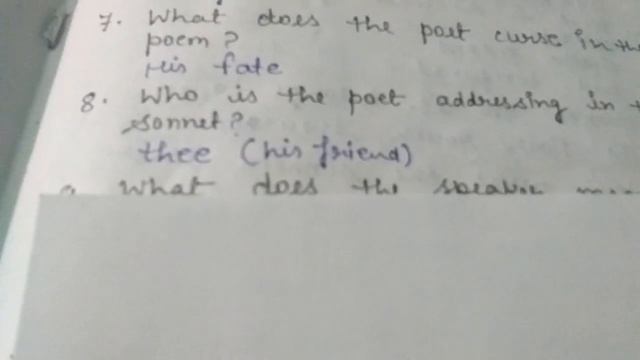 7. What does the poet curse in the
poem?
His fate
8. Who is the poet addressing in
sonnet?
thee (his friend)
What does the